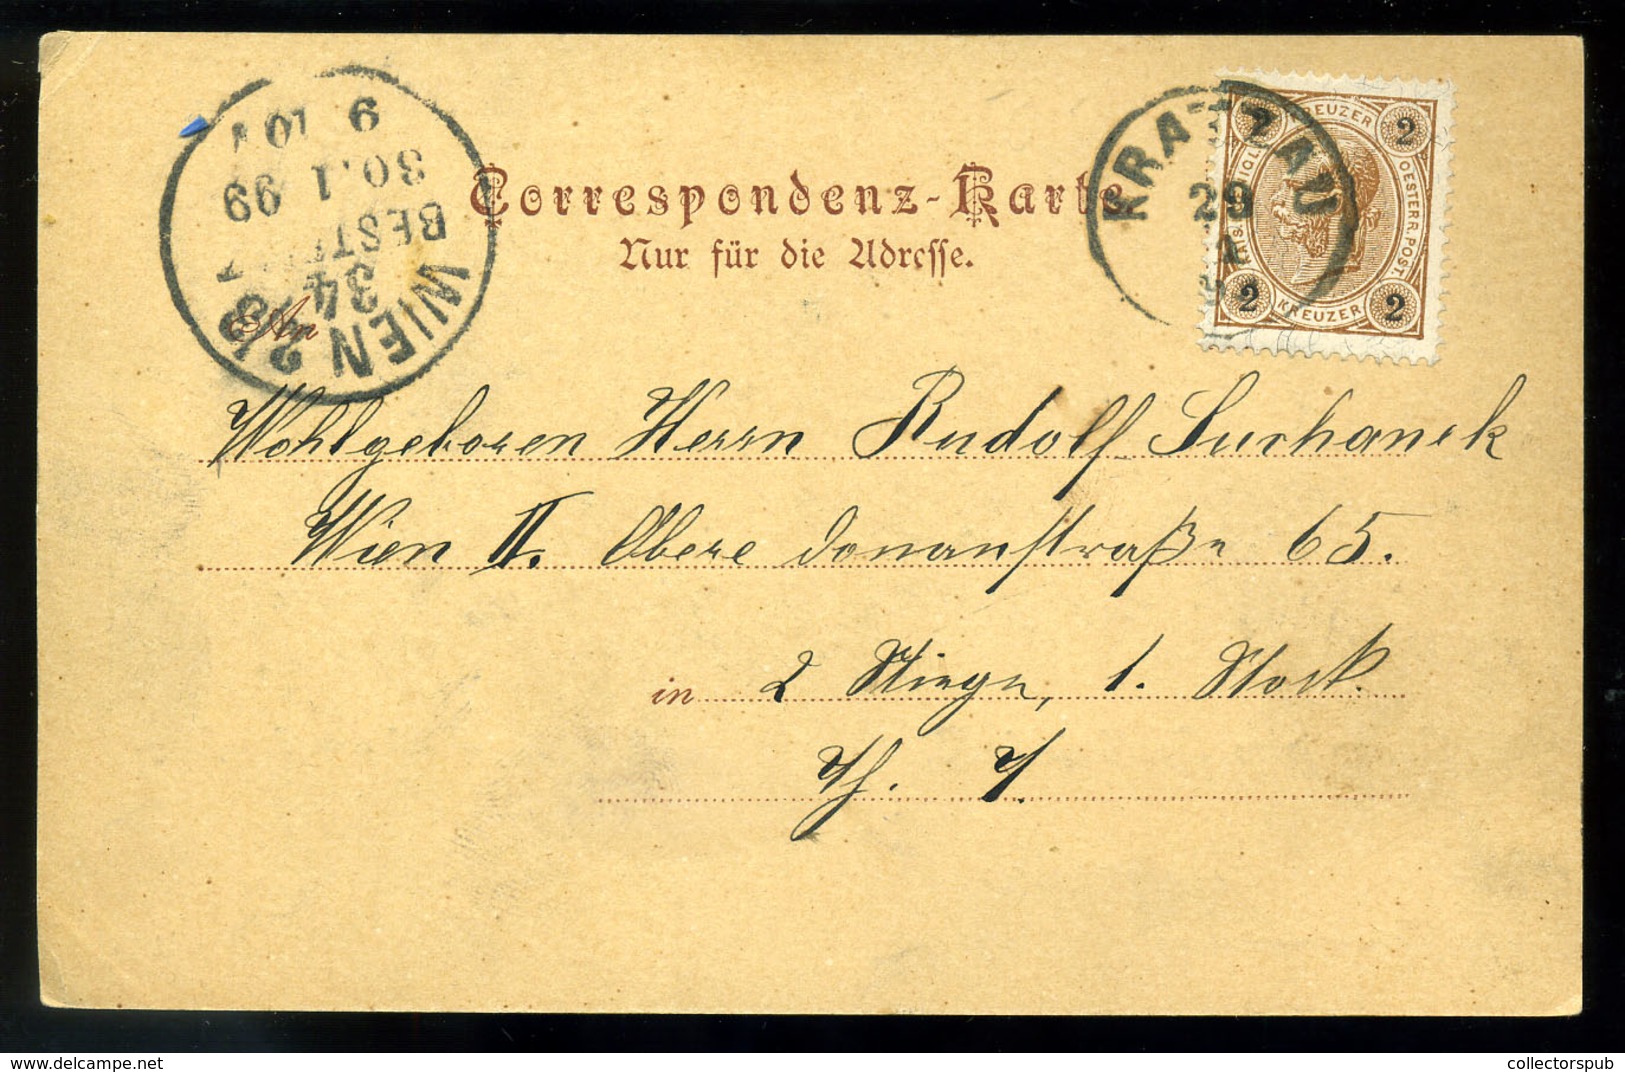 Correspondenz-Karte
Nur für die Adresse.
An
WIEN 2/3
34
BESTELLT
30.1 99
9
KRATZAU
29
1
KREUZER
2 2
KAIS. KÖNIGL. OESTERR. POST.
2 2
KREUZER
Wohlgeboren Herrn Rudolf Suchanek
Wien II. Obere Donaustraße 65.
in 2 Stiege, 1. Stock.
Th.
collectorspub